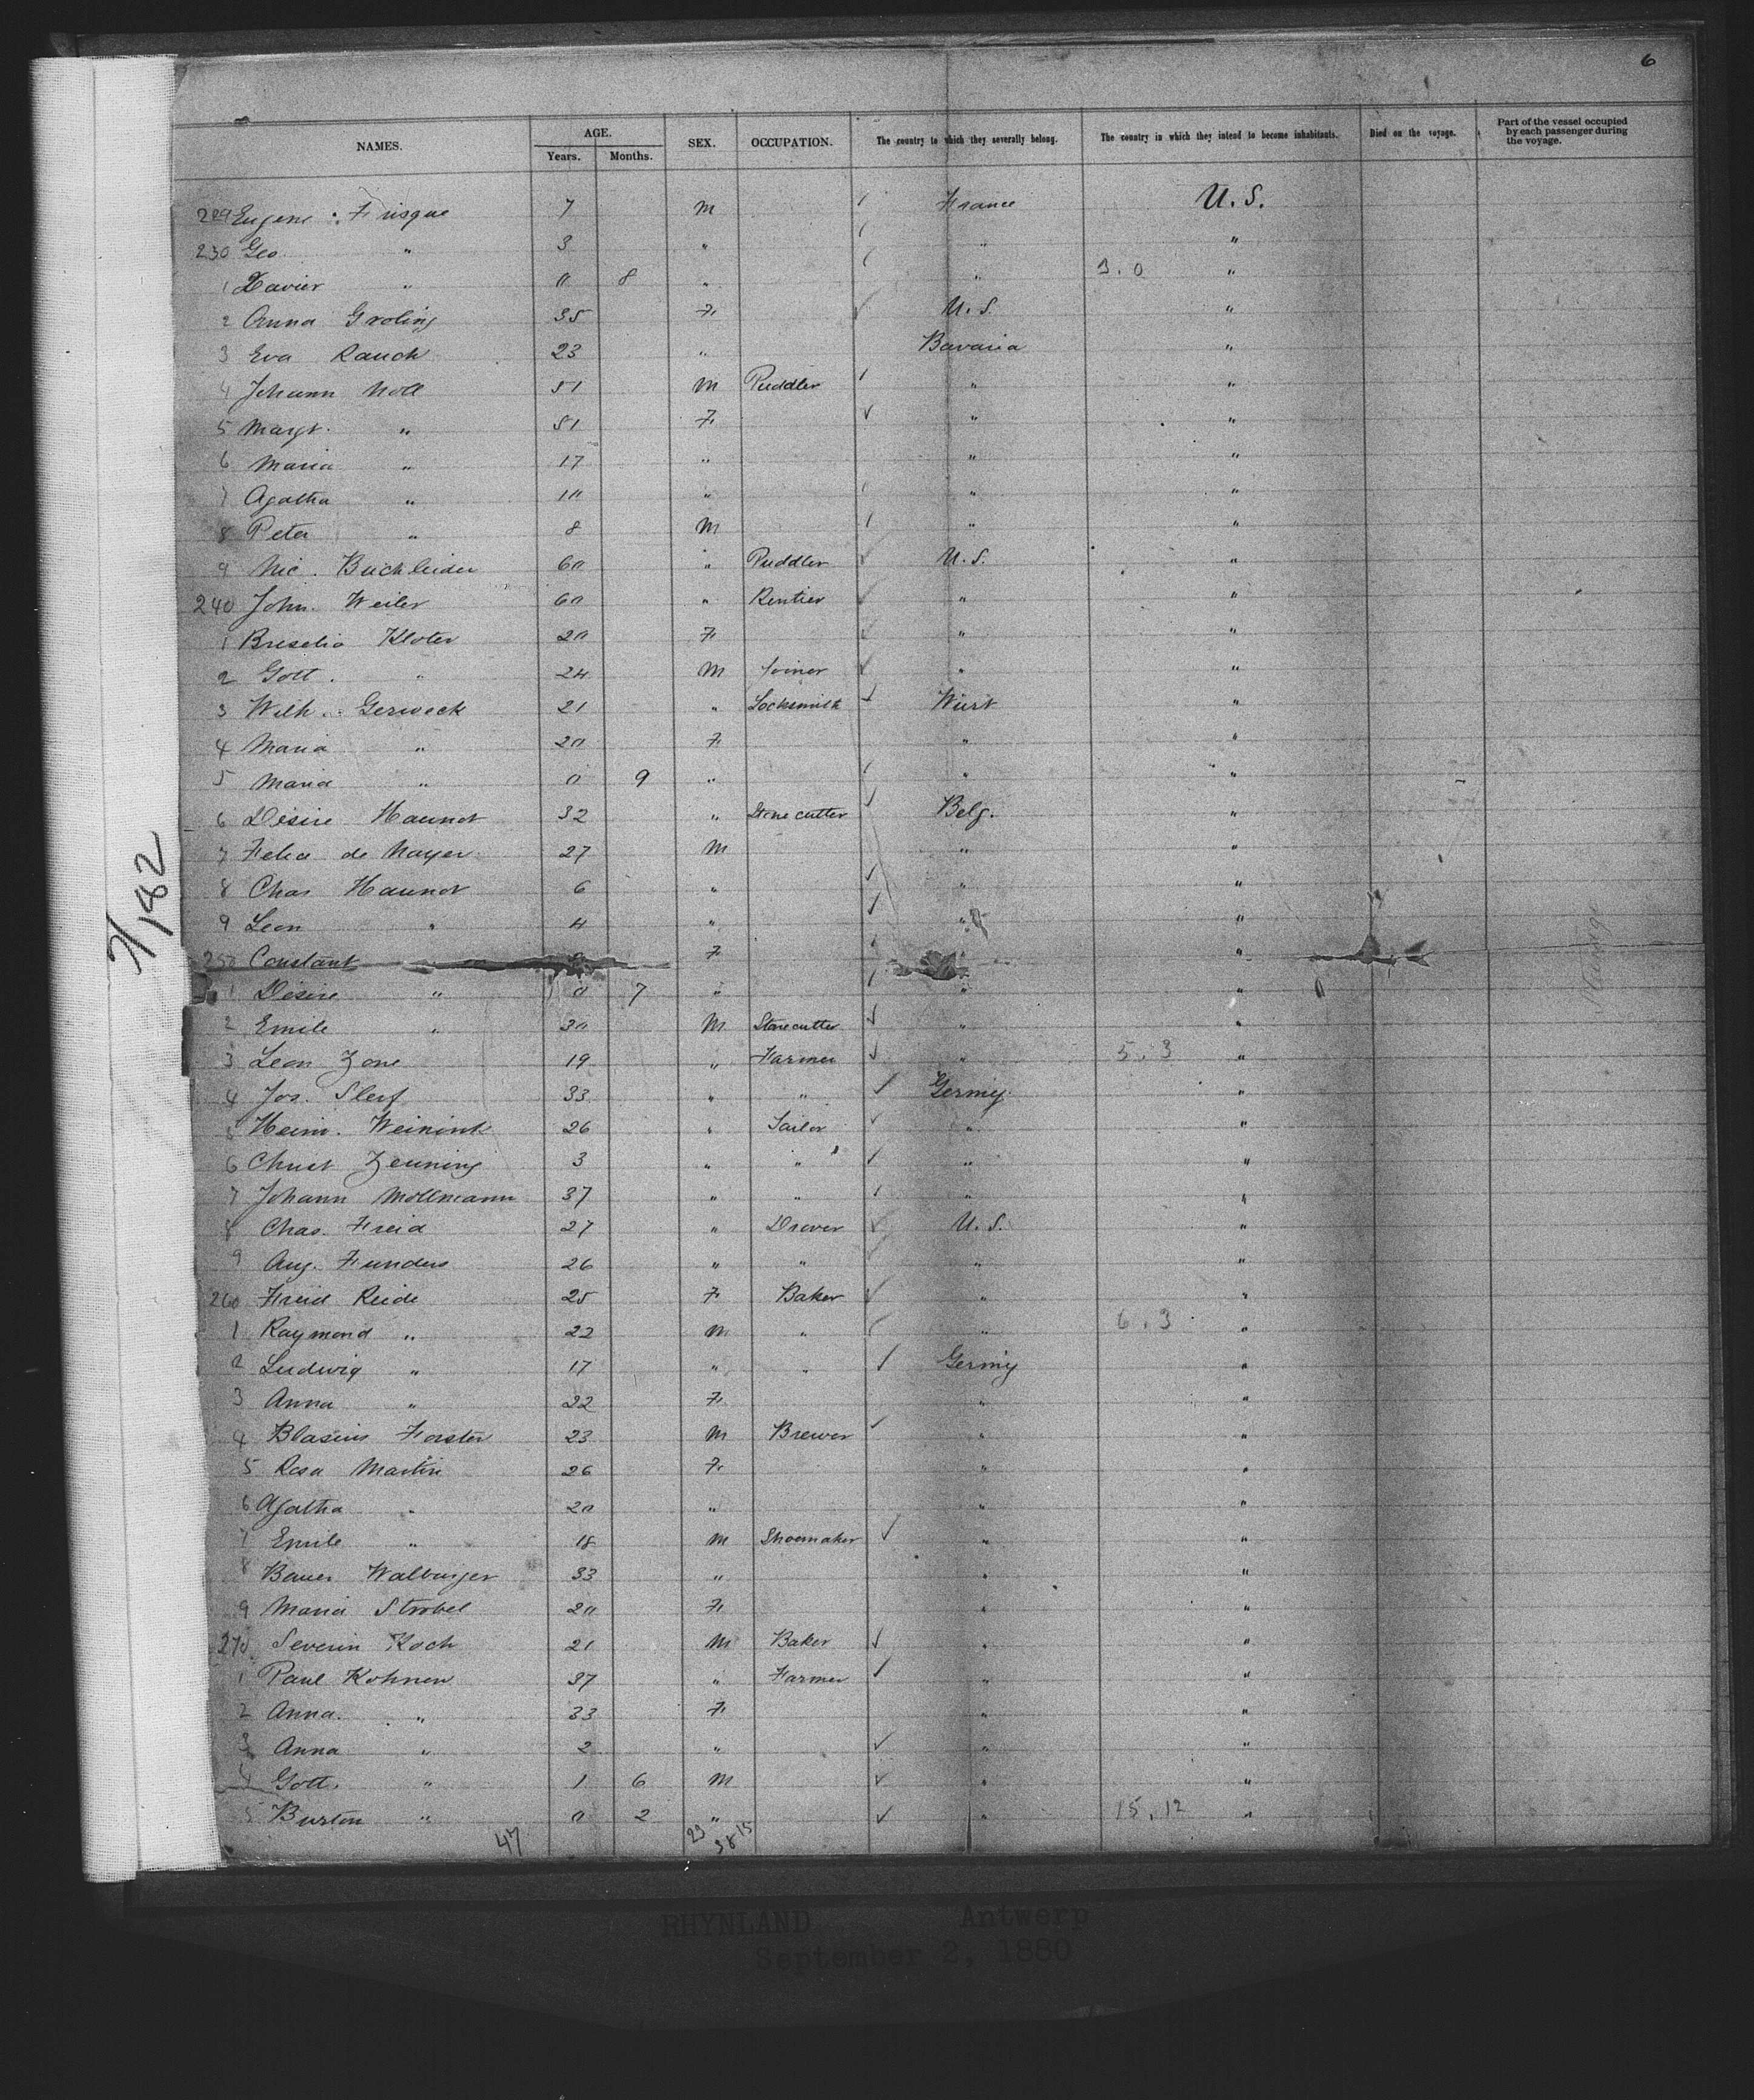 6
NAMES. AGE. Years. Months. SEX. OCCUPATION. The country to which they severally belong. The country in which they intend to become inhabitants. Died on the voyage. Part of the vessel occupied by each passenger during the voyage.
229 Eugene Frisque 7 M France U.S.
230 Geo " 3 " " "
1 Xavier " 0 8 " " 3.0 "
2 Anna Groling 35 F U.S. "
3 Eva Rauch 23 " Bavaria "
4 Johann Noll 51 M Puddler " "
5 Margt. " 51 F " "
6 Maria " 17 " " "
7 Agatha " 10 " " "
8 Peter " 8 M " "
9 Nic. Buchleider 60 " Puddler U.S. "
240 John Weiler 60 " Rentier " "
1 Kloter 20 F " "
2 Gott. " 24 M Joiner " "
3 Wilh. Gerweck 21 " Locksmith Würt "
4 Maria " 20 F " "
5 Maria " 0 9 " " "
6 Désire Haunot 32 " Stonecutter Belg. "
7 Felia de Nayer 27 M " "
8 Chas Haunot 6 " " "
9 Leon " 4 " " "
250 Constant " F " "
1 Désire " 0 7 " " "
2 Emile " 30 M Stonecutter " "
3 Leon Zone 19 " Farmer " 5.3 "
4 Jos. Slerf 33 " " Germy. "
5 Heinr. Weinink 26 " Tailor " "
6 Christ Zeuning 3 " " " "
7 Johann Mollmann 37 " " " "
8 Chas. Freid 27 " Drover U.S. "
9 Aug. Funders 26 " " " "
260 Freid Reide 25 F Baker " "
1 Raymond " 22 M " " 6.3 "
2 Ludwig " 17 " " Germy "
3 Anna " 22 F " "
4 Blasius Forster 23 M Brewer " "
5 Rosa Martin 26 F " "
6 Agatha " 20 " " "
7 Emile " 18 M Shoemaker " "
8 Bauer Walburger 33 " " "
9 Maria Strobel 20 F " "
270 Severin Koch 21 M Baker " "
1 Paul Kohnen 37 " Farmer " "
2 Anna " 33 F " "
3 Anna " 2 " " "
4 Gott. " 1 6 M " "
5 Burton " 0 2 " " 15.12 "
47 29 38 15
7/182
RHYNLAND Antwerp
September 2, 1880